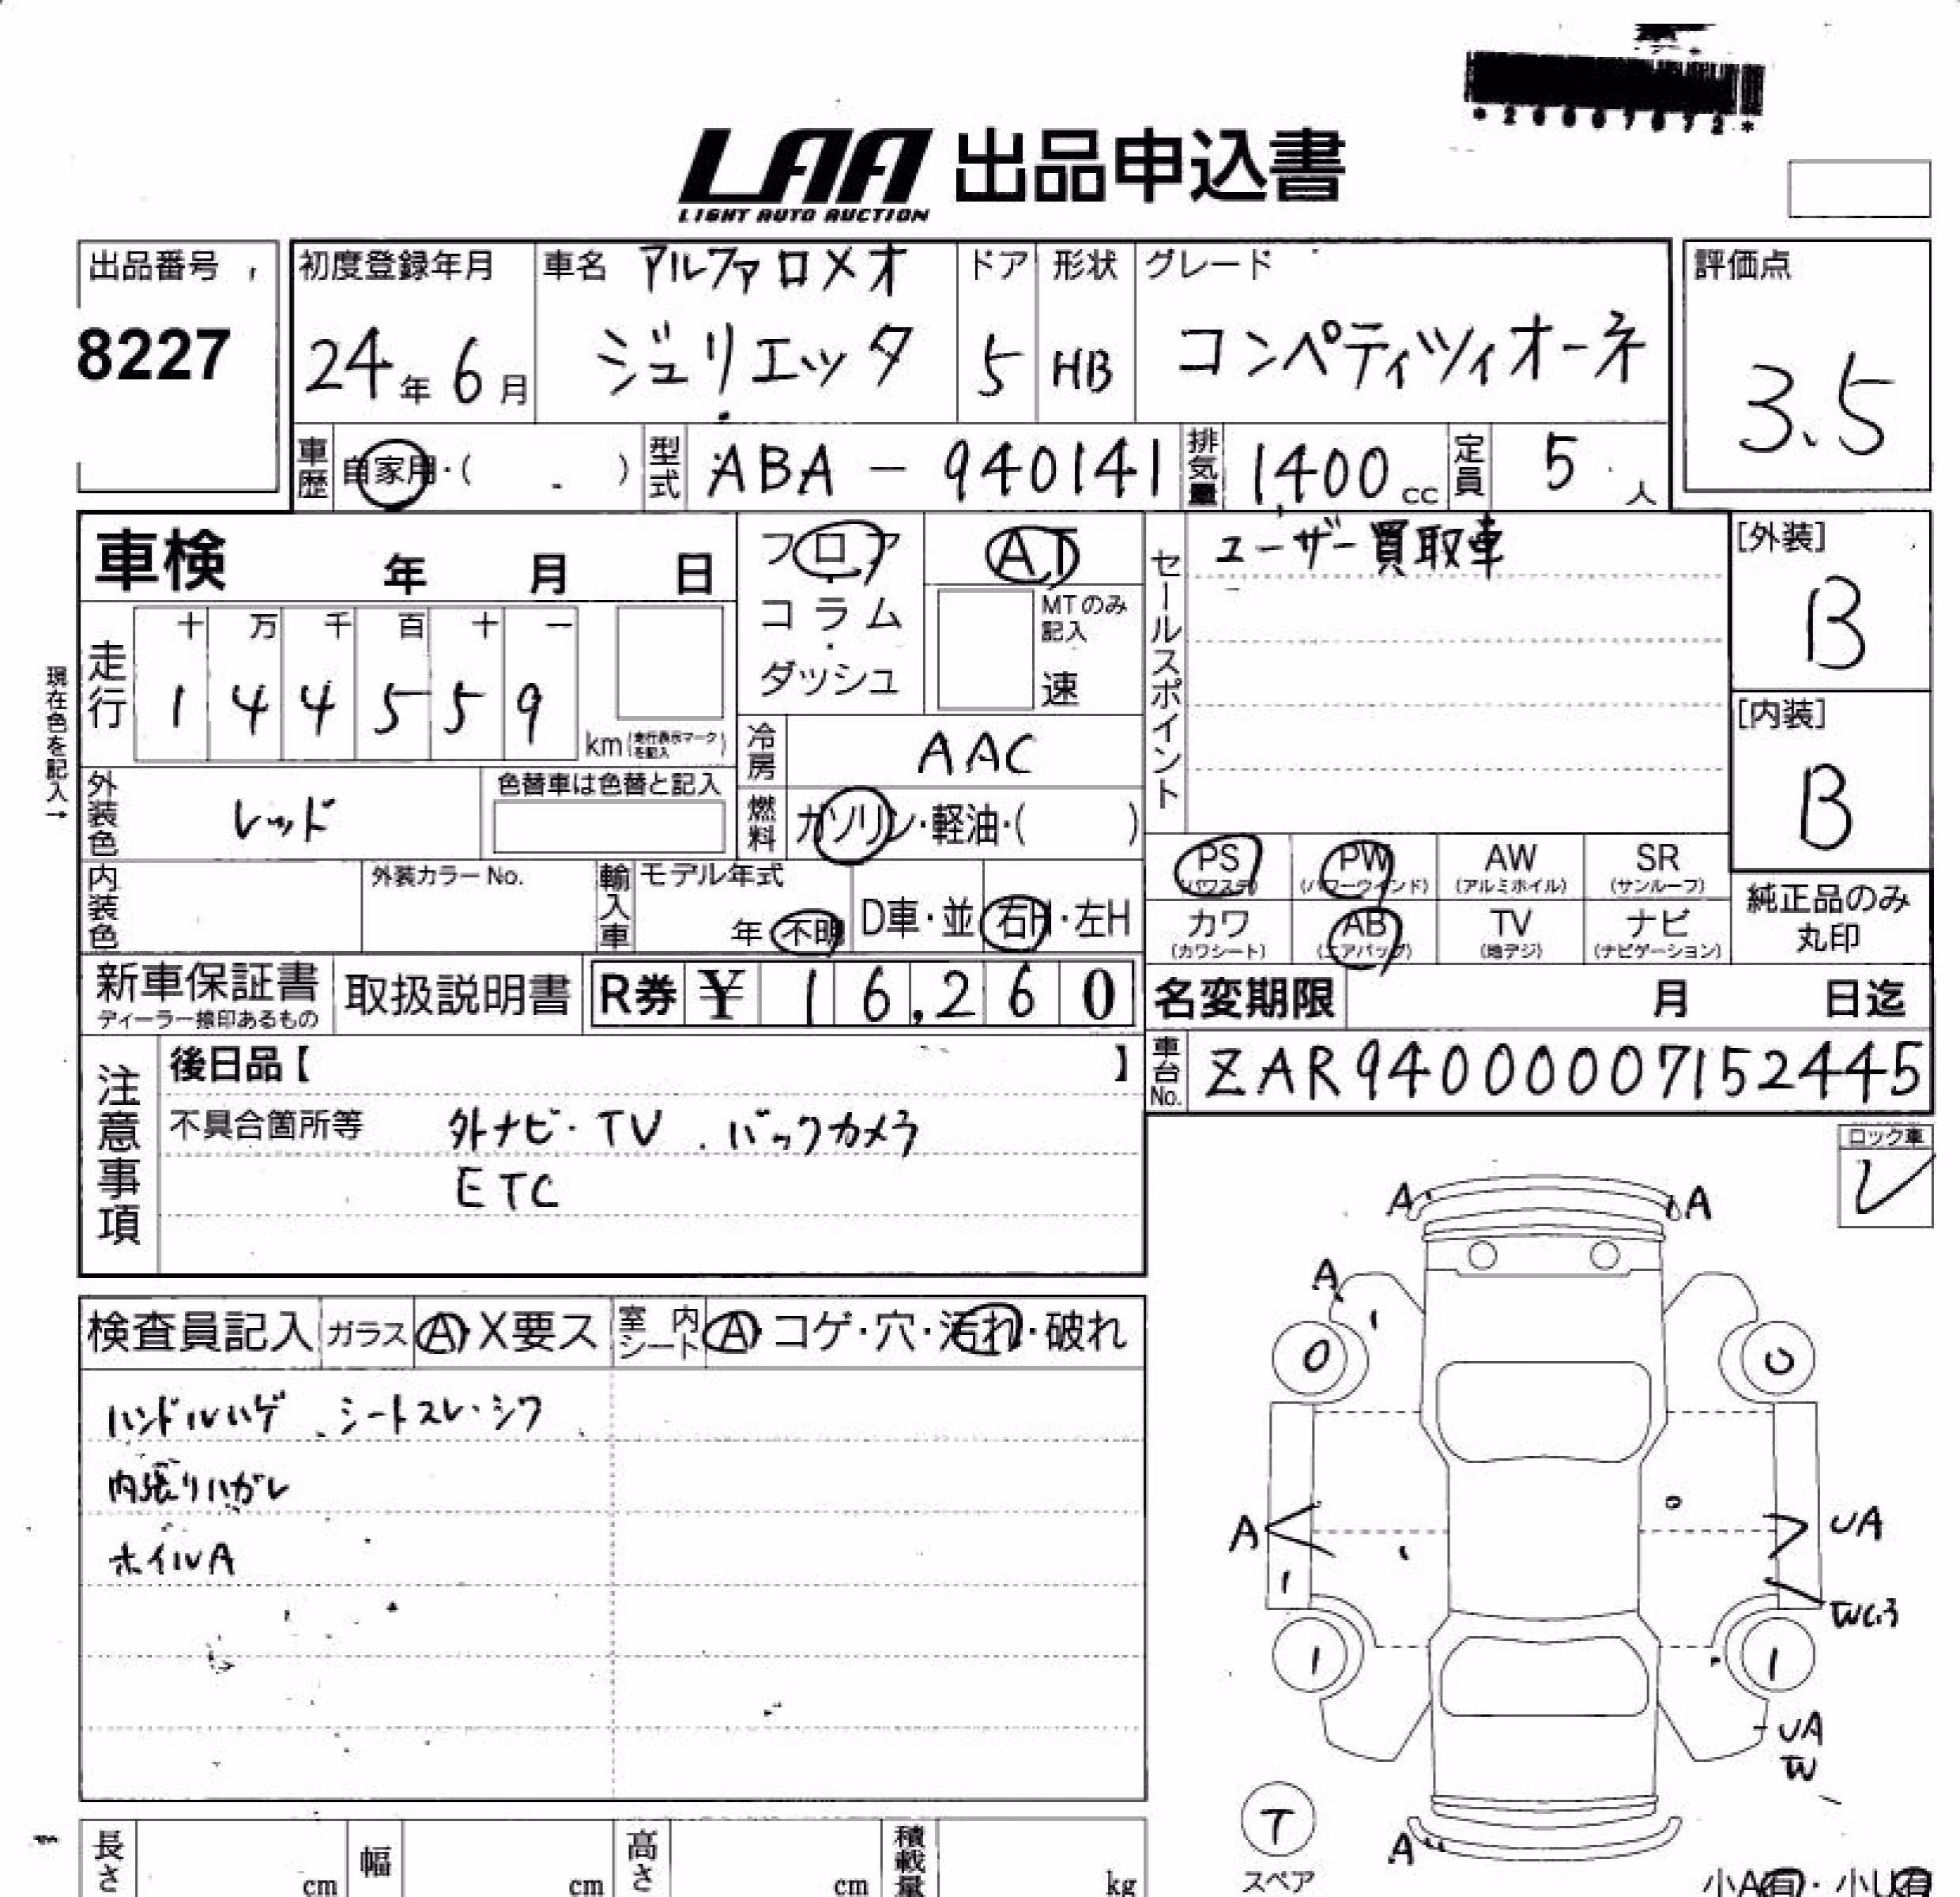 LAA 出品申込書
LIGHT AUTO AUCTION
出品番号
8227
初度登録年月
24年6月
車名 アルファロメオ
ジュリエッタ
ドア
5
形状
HB
グレード
コンペティツィオーネ
評価点
3.5
車歴 自家用・( )
型式 ABA-940141
排気量 1,400 cc
定員 5 人
車検 年 月 日
フロア
コラム
ダッシュ
AT
MTのみ記入
速
セールスポイント
ユーザー買取車
[外装]
B
[内装]
B
現在色を記入→
走行
十 万 千 百 十 一
1 4 4 5 5 9
km(走行表示マークを記入)
冷房 AAC
外装色 レッド
色替車は色替と記入
燃料 ガソリン・軽油・( )
PS (パワステ)
PW (パワーウインド)
AW (アルミホイル)
SR (サンルーフ)
カワ (カワシート)
AB (エアバッグ)
TV (地デジ)
ナビ (ナビゲーション)
純正品のみ
丸印
内装色
外装カラーNo.
輸入車
モデル年式
年 不明
D車・並
右H・左H
新車保証書
取扱説明書
R券 ¥16,260
名変期限 月 日迄
注意事項
後日品【 】
車台No. ZAR94000007152445
不具合箇所等 外ナビ・TV . バックカメラ
ETC
ロック車
レ
検査員記入
ガラス A・X要ス
室内シート A・コゲ・穴・汚れ・破れ
ハンドルハゲ . シートスレ・シワ
内張りハガレ
ホイルA
A A
A
0 0
A UA
1
1 1
UA
W
T
スペア
A
長さ cm
幅 cm
高さ cm
積載量 kg
小A有・小U有